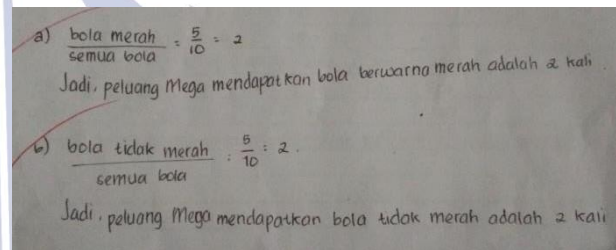 a) bola merah / semua bola = 5/10 = 2
Jadi, peluang Mega mendapatkan bola berwarna merah adalah 2 kali.
b) bola tidak merah / semua bola = 5/10 = 2.
Jadi, peluang Mega mendapatkan bola tidak merah adalah 2 kali